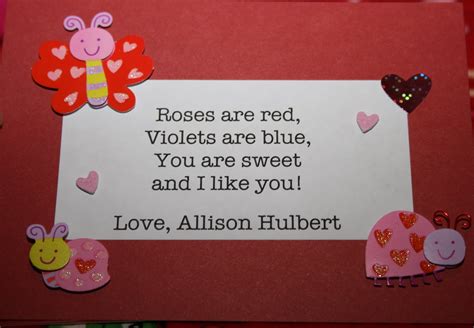 Roses are red,
Violets are blue,
You are sweet
and I like you!
Love, Allison Hulbert